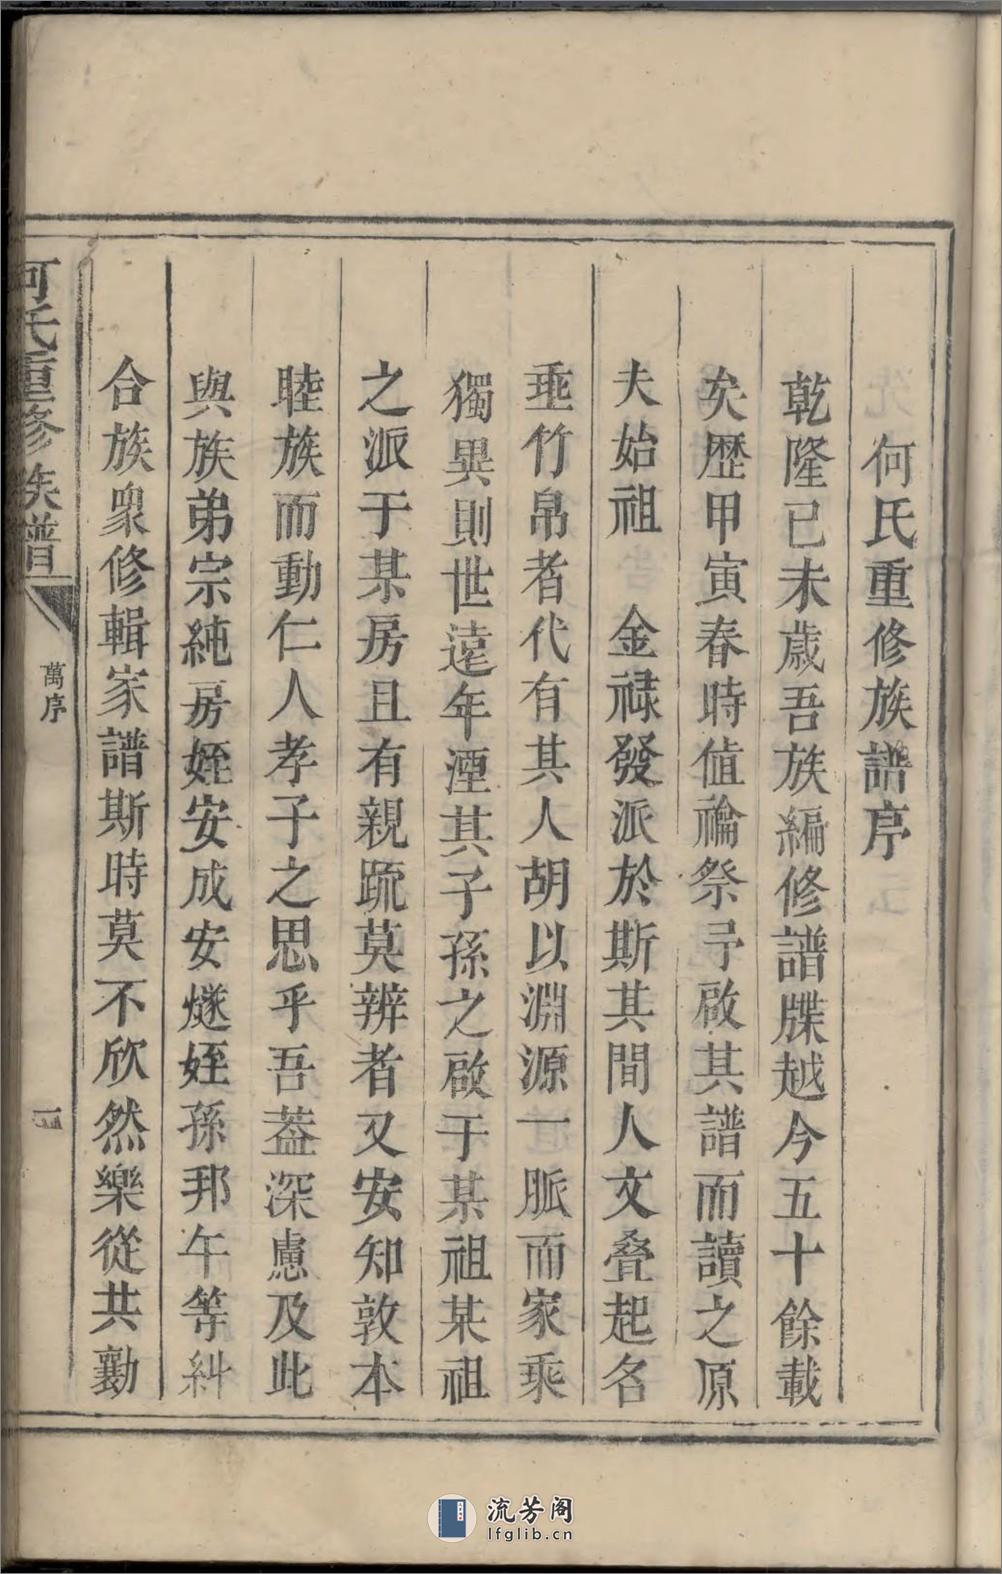 何氏重修族譜序
乾隆已未歲吾族編修譜牒越今五十餘載
矣歷甲寅春時值禴祭予啟其譜而讀之原
夫始祖　金祿發派於斯其間人文叠起名
垂竹帛者代有其人胡以淵源一脈而家乘
獨異則世遠年湮其子孫之啟于某祖某祖
之派于某房且有親疏莫辨者又安知敦本
睦族而動仁人孝子之思乎吾葢深慮及此
與族弟宗純房姪安成安燧姪孫邦午等糾
合族衆修輯家譜斯時莫不欣然樂從共勷
何氏重修族譜
萬序
一
流芳阁
lfglib.cn